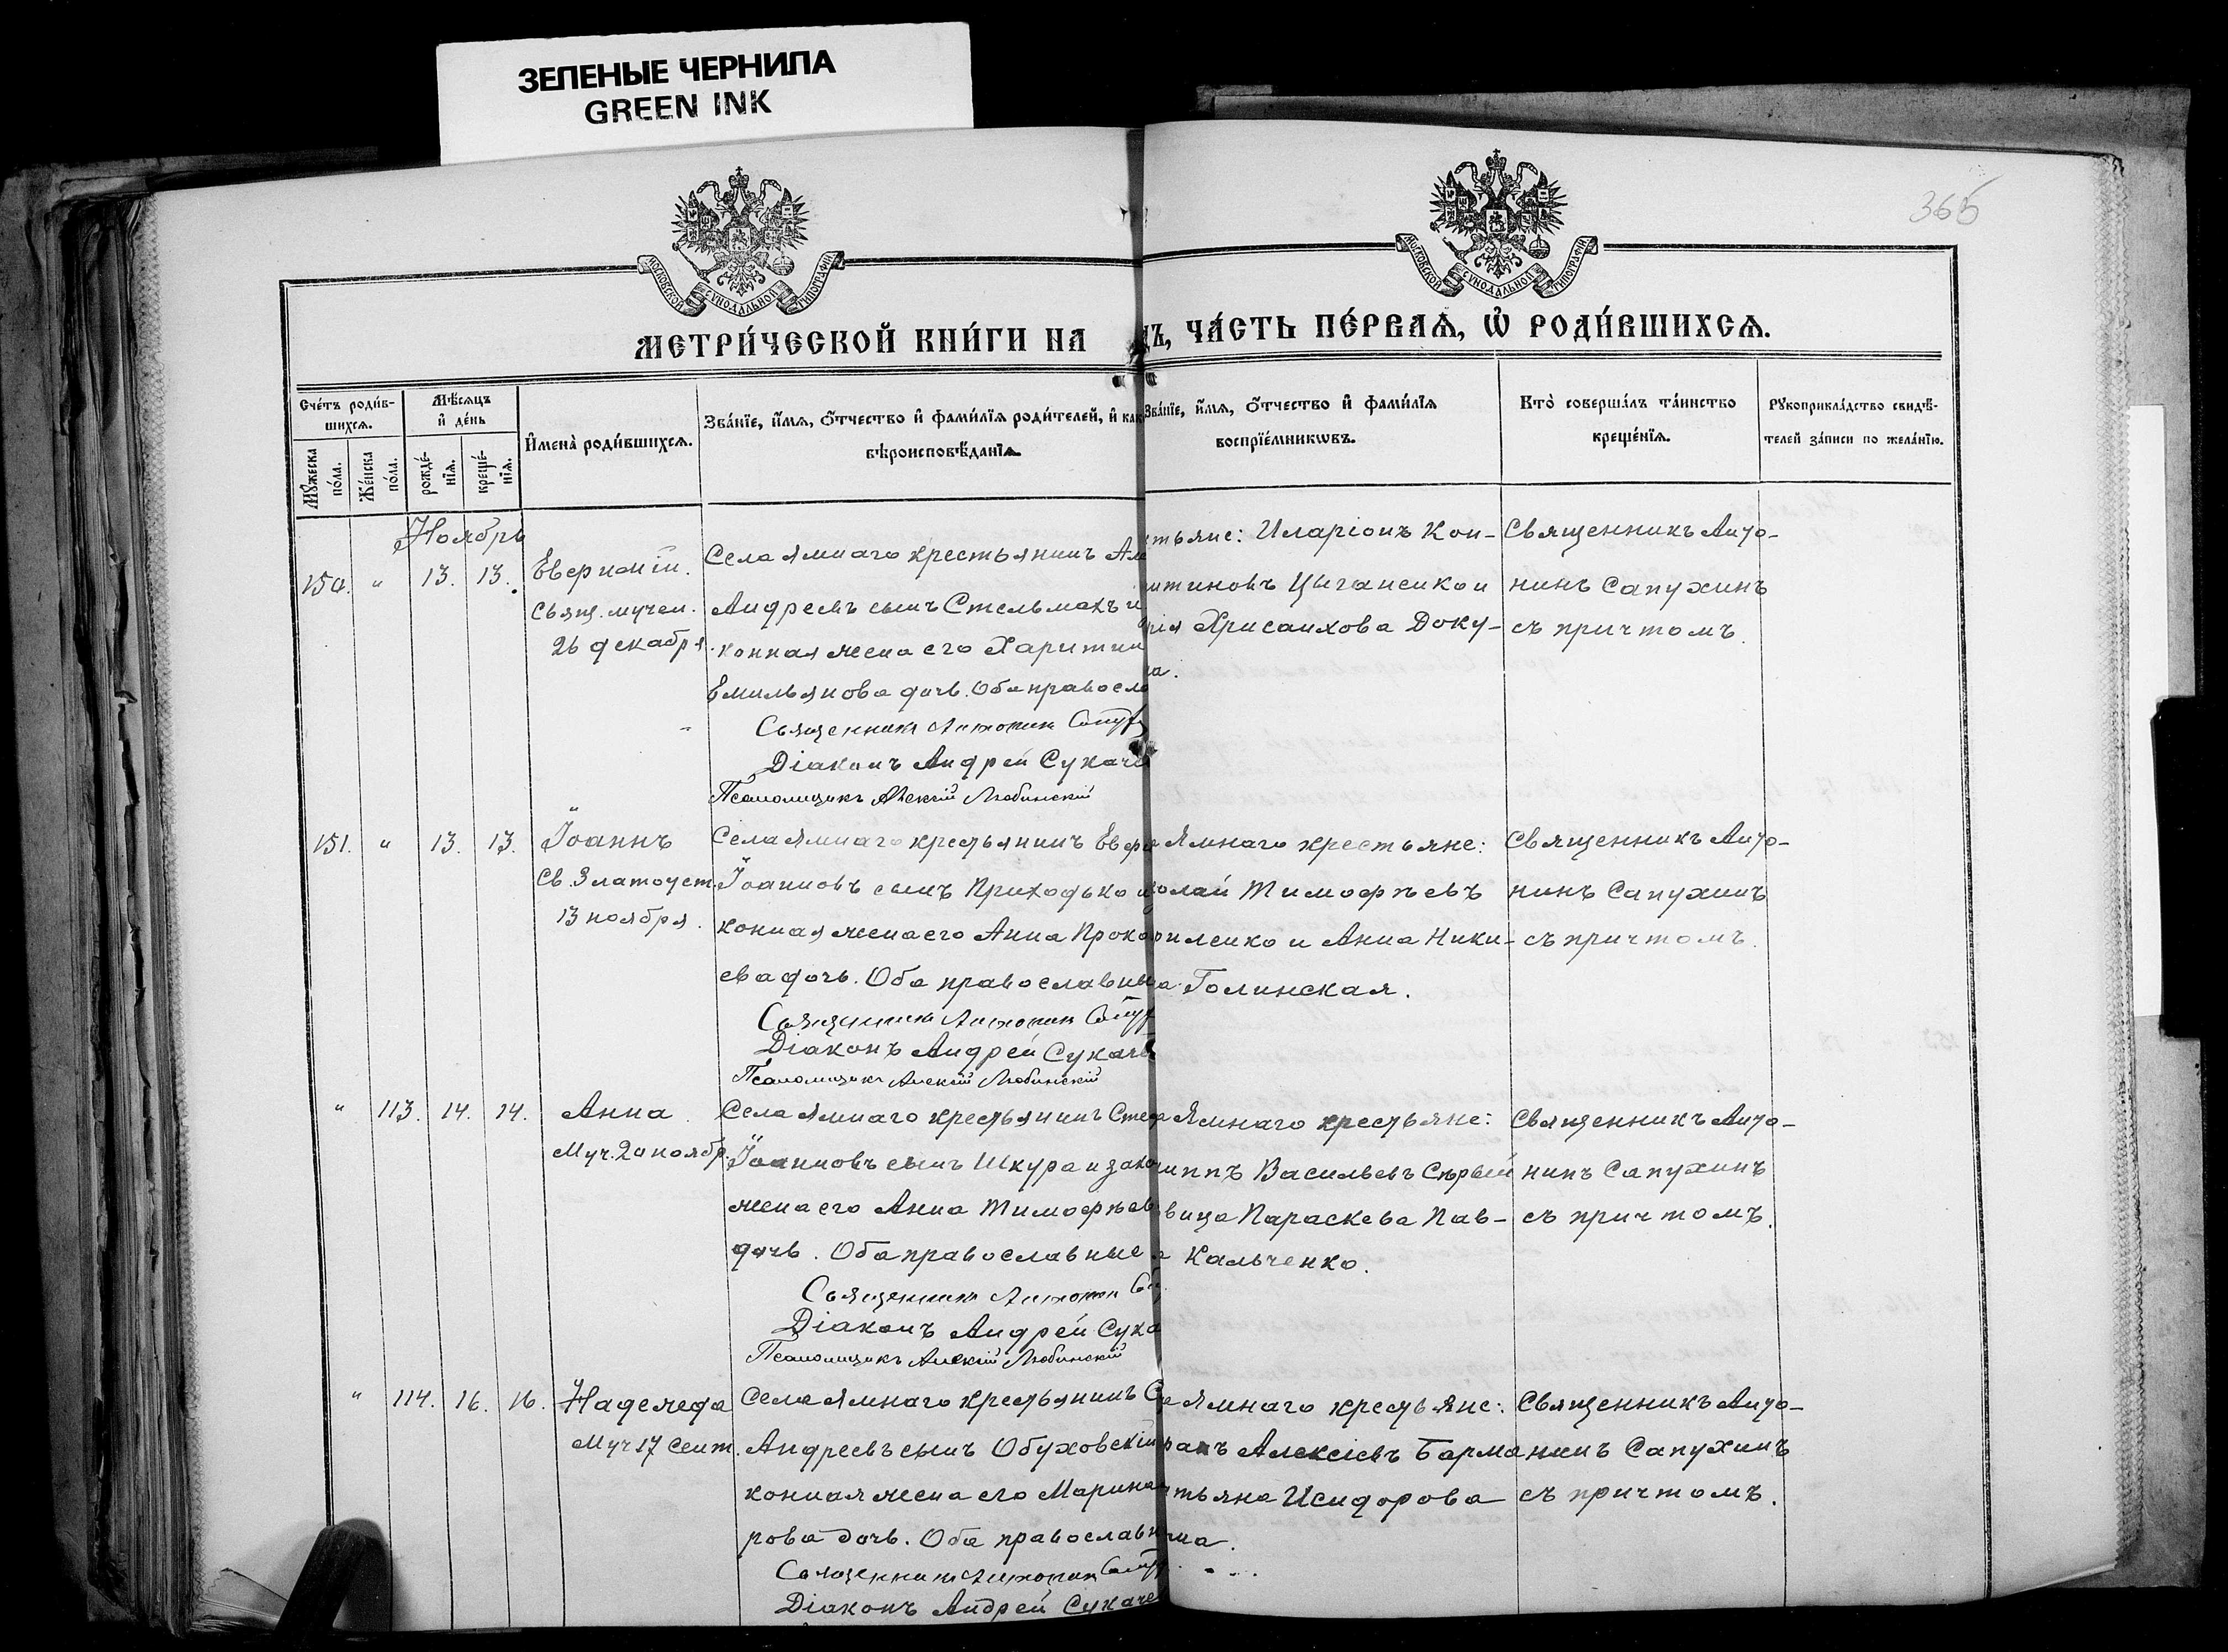 ЗЕЛЕНЫЕ ЧЕРНИЛА
GREEN INK
365
МОСКОВСКОЙ СУНОДАЛЬНОЙ ТИПОГРАФІИ
МОСКОВСКОЙ СУНОДАЛЬНОЙ ТИПОГРАФІИ
МЕТРИ́ЧЕСКОЙ КНИ́ГИ НА
ДЪ, ЧА́СТЬ ПЕ́РВАЯ, Ѡ РОДИ́ВШИХСЯ.
Сче́тъ роди́в-
шихся.
Мꙋжеска
по́ла.
Же́нска
по́ла.
Мѣ́сяцъ
и́ де́нь
рожде́-
нія.
креще́-
нія.
И҆мена̀ роди́вшихся.
Зва́ніе, и҆́мя, ѻ҆́тчество и҆ фами́лія роди́телей, и҆ как
вѣроисповѣ́данія.
Зва́ніе, и҆́мя, ѻ҆́тчество и҆ фами́лія
воспріе́мникѡвъ.
Кто̀ соверша́лъ та́инство
креще́нія.
Рꙋкоприкла́дство свидѣ́-
телей за́писи по жела́нію.
Ноябрь
150. " 13. 13.
Евѳимій.
Свящ. мучен.
26 декабря.
Села Ямнаго крестьянинъ Але
Андреевъ сынъ Стельмахъ и
конная жена его Харитин
Емильянова дочь. Оба правосла
Священникъ Антонин Сапух
Діаконъ Андрей Сукаче
Псаломщикъ Алексій Любинскій
стьяне: Иларіонъ Кон-
нтиновъ Цыганенко и
рія Хрисанхова Доку-
на.
Священникъ Анто-
нинъ Сапухинъ
съ причтомъ.
151. " 13. 13.
Іоаннъ
Св. Златоуст.
13 ноября.
Села Ямнаго крестьянинъ Евфи
Іоанновъ сынъ Приходько и
конная жена его Анна Проко
ева дочь. Оба православны
Священникъ Антонин Сапух
Діаконъ Андрей Сукаче
Псаломщикъ Алексій Любинскій
Ямнаго крестьяне:
колай Тимофѣевъ
рпиленко и Анна Ники-
а Голинская.
Священникъ Анто-
нинъ Сапухинъ
съ причтомъ.
" 113. 14. 14.
Анна
Муч. 20 ноябр.
Села Ямнаго крестьянинъ Стеф
Іоанновъ сынъ Шкура и зако
жена его Анна Тимофѣев
дочь. Оба православные
Священникъ Антонин Са
Діаконъ Андрей Сука
Псаломщикъ Алексій Любинскій
Ямнаго крестьяне:
иппъ Васильевъ Сѣрый
вица Параскева Пав-
а Кальченко.
Священникъ Анто-
нинъ Сапухинъ
съ причтомъ.
" 114. 16. 16.
Надежда
Муч 17 Сент.
Села Ямнаго крестьянинъ С
Андреевъ сынъ Обуховскій
конная жена его Марина
рова дочь. Оба православн
Священникъ Антонин Сапух
Діаконъ Андрей Сукаче
е Ямнаго крестьяне:
ранъ Алексіевъ Барма
тьяна Исидорова
на.
Священникъ Анто-
нинъ Сапухинъ
съ причтомъ.